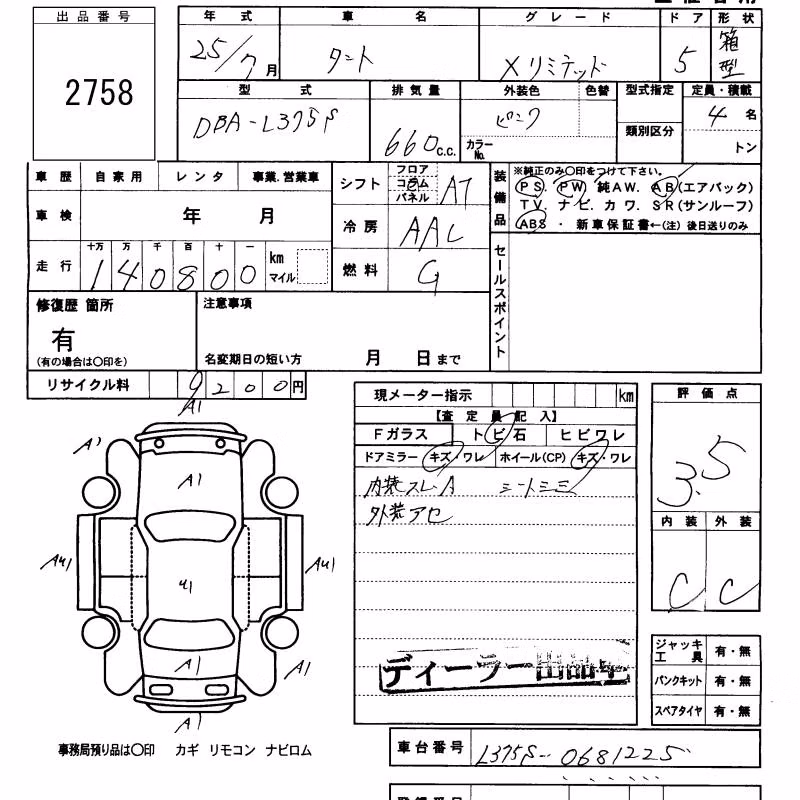 出品番号 年式 車名 グレード ドア 形状
2758 25/7月 タント Xリミテッド 5 箱型
型式 排気量 外装色 色替 型式指定 定員・積載
DBA-L375S 660c.c. ピンク カラーNo. 類別区分 4名 トン
車歴 自家用 レンタ 事業.営業車
車検 年 月
走行 十万 万 千 百 十 一 km マイル
140800
シフト フロア コラム パネル AT
冷房 AAC
燃料 G
装備品 ※純正のみ〇印をつけて下さい。
PS. PW 純AW. AB(エアバック)
TV. ナビ. カワ. SR(サンルーフ)
ABS ・ 新車保証書←(注) 後日送りのみ
セールスポイント
修復歴 箇所 注意事項
有
(有の場合は〇印を) 名変期日の短い方 月 日まで
リサイクル料 9200円
現メーター指示 km
【査定員記入】
Fガラス トビ石 ヒビワレ
ドアミラー キズ・ワレ ホイール(CP) キズ・ワレ
内装スレ.A シートシミ
外装アセ
評価点
3.5
内装 外装
C C
A1
A1 A1
AU1 U1 AU1
A1 A1
A1
ディーラー出品車
ジャッキ工具 有・無
パンクキット 有・無
スペアタイヤ 有・無
事務局預り品は〇印 カギ リモコン ナビロム
車台番号 L375S-0681225